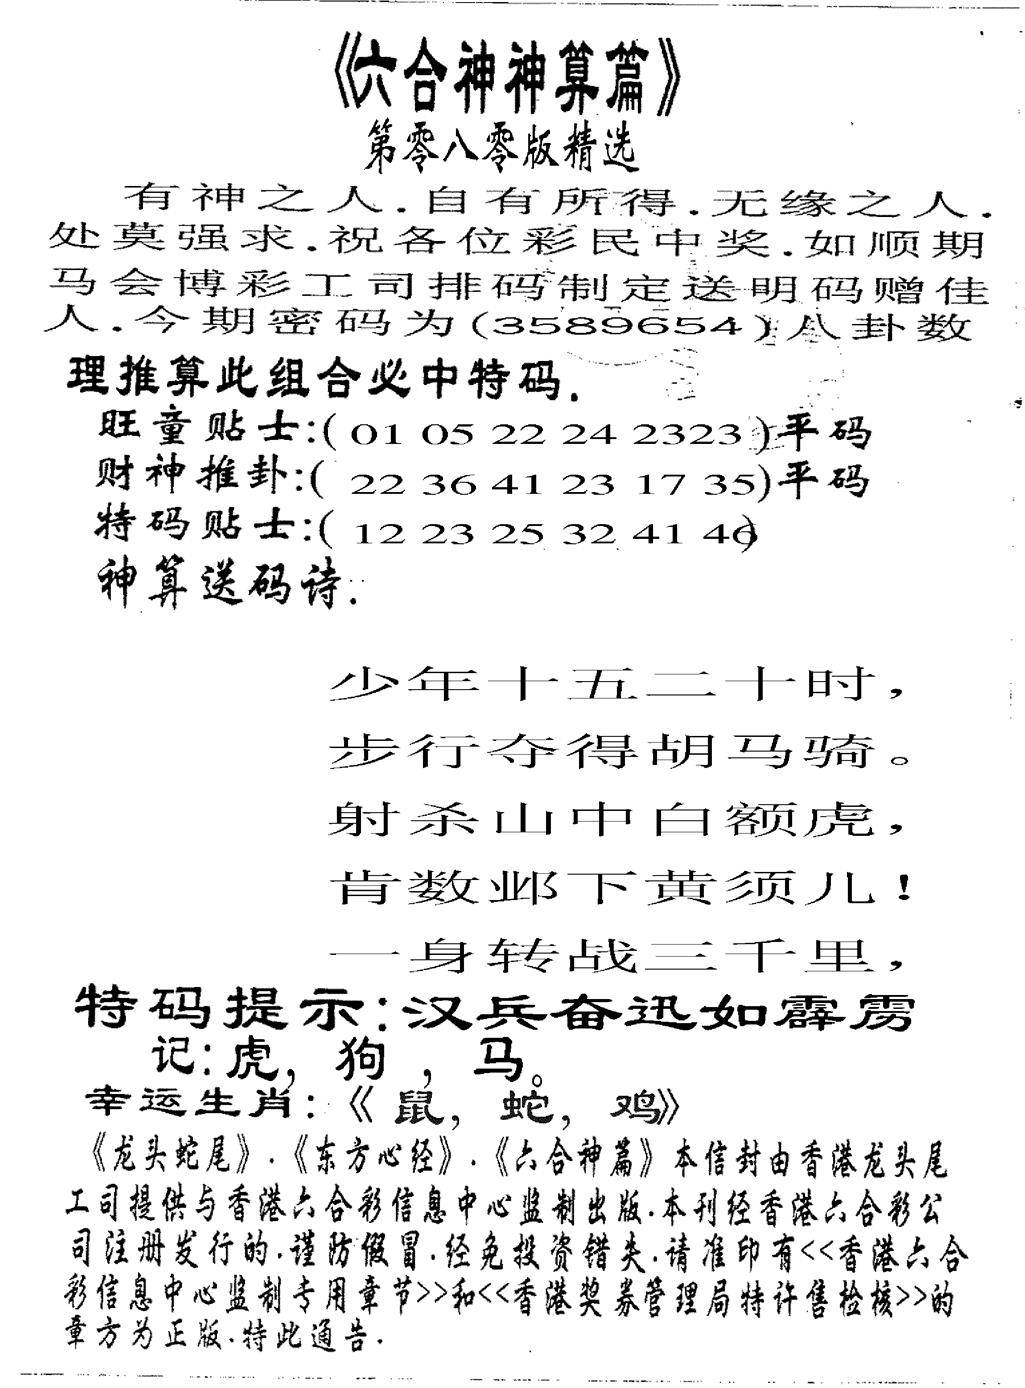 《六合神神算篇》
第零八零版精选
有神之人.自有所得.无缘之人.
处莫强求.祝各位彩民中奖.如顺期
马会博彩工司排码制定送明码赠佳
人.今期密码为(3589654)八卦数
理推算此组合必中特码.
旺童贴士:( 01 05 22 24 2323 )平码
财神推卦:( 22 36 41 23 17 35)平码
特码贴士:( 12 23 25 32 41 46)
神算送码诗.
少年十五二十时,
步行夺得胡马骑。
射杀山中白额虎,
肯数邺下黄须儿!
一身转战三千里,
特码提示:汉兵奋迅如霹雳
记:虎,狗,马。
幸运生肖:《鼠,蛇,鸡》
《龙头蛇尾》.《东方心经》.《六合神篇》本信封由香港龙头尾
工司提供与香港六合彩信息中心监制出版.本刊经香港六合彩公
司注册发行的.谨防假冒.经免投资错失.请准印有<<香港六合
彩信息中心监制专用章节>>和<<香港奖券管理局特许售检核>>的
章方为正版.特此通告.